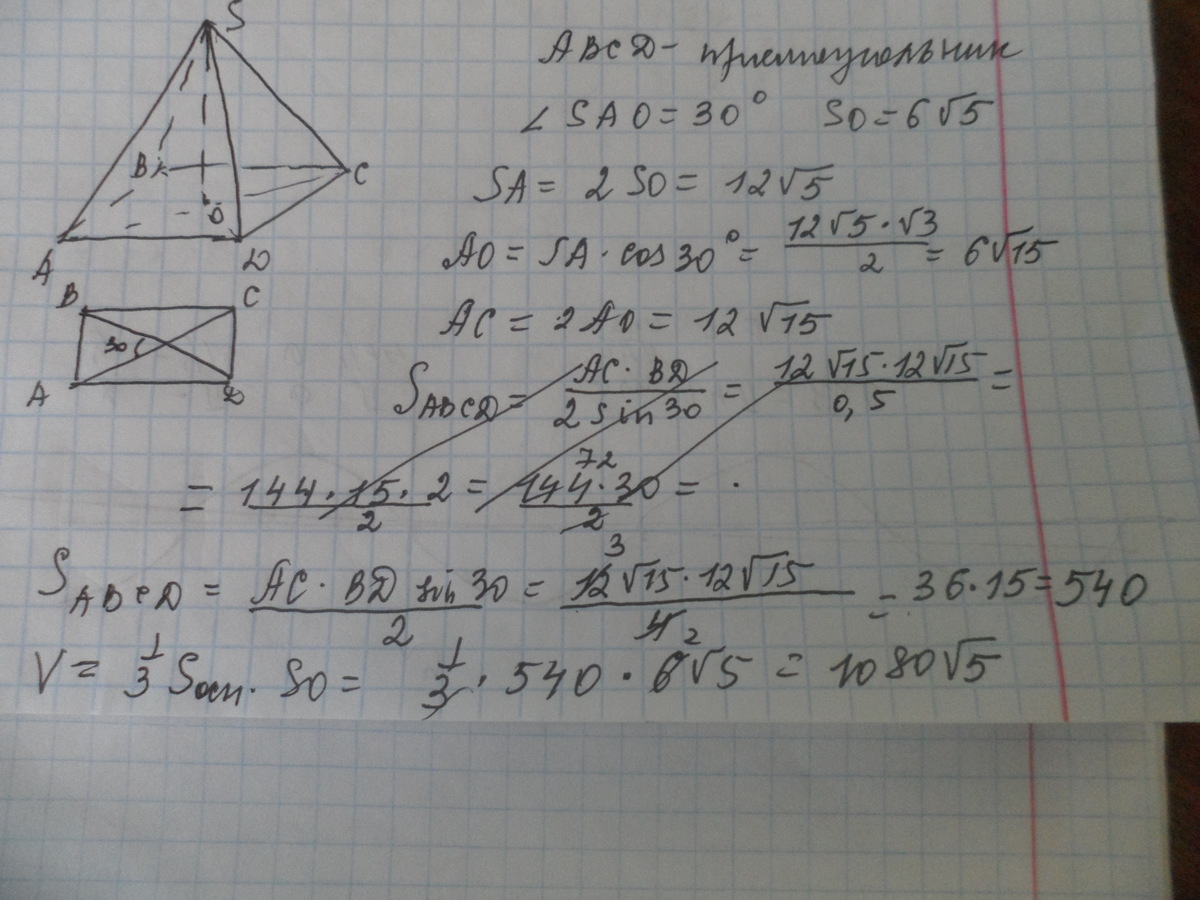 S
B
C
O
A
D
B
C
30
A
D
ABCD - прямоугольник
∠SAO = 30° SO = 6√5
SA = 2SO = 12√5
AO = SA · cos 30° = 12√5 · √3 / 2 = 6√15
AC = 2AO = 12√15
S ABCD = AC · BD / 2 sin 30 = 12√15 · 12√15 / 0,5 =
= 144 · 15 · 2 / 2 = 144 · 30 / 2 = ·
72
S ABCD = AC · BD sin 30 / 2 = 12√15 · 12√15 / 4 = 36 · 15 = 540
3
V = 1/3 Sосн. SO = 1/3 · 540 · 6√5 = 1080√5
2